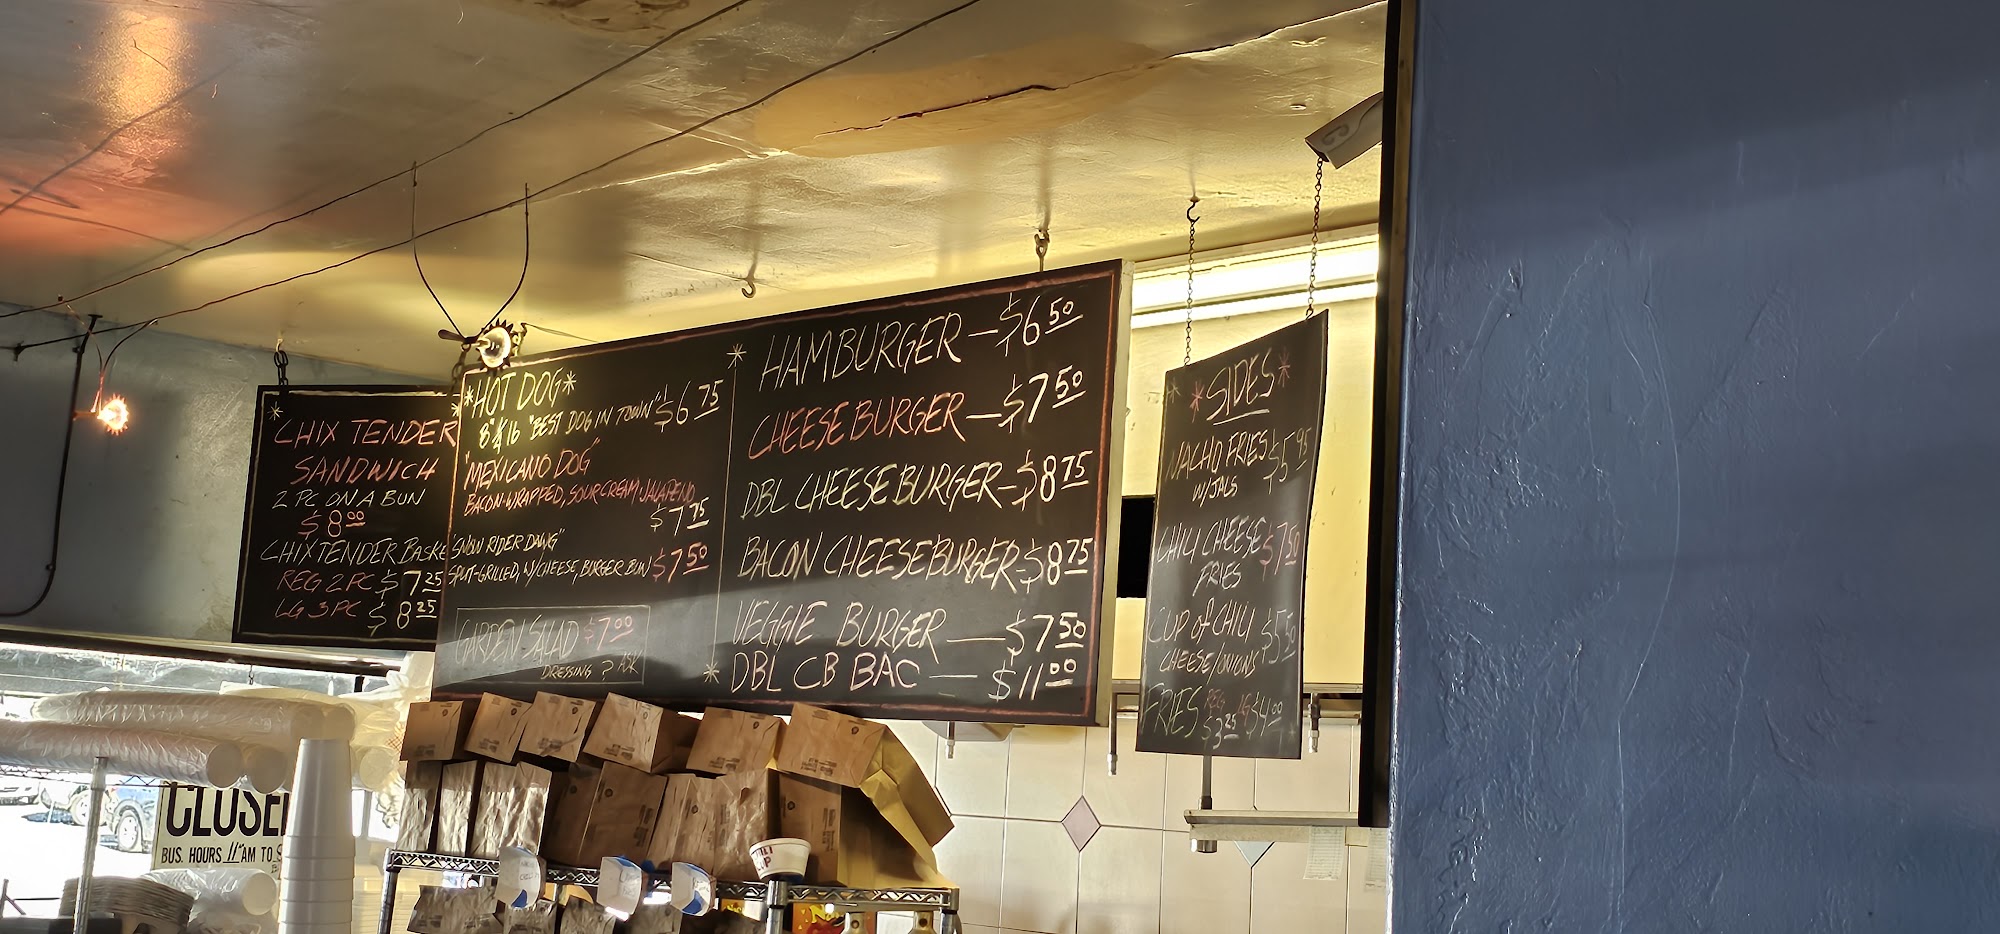 CHIX TENDER
SANDWICH
2 PC ON A BUN
$8.00
CHIX TENDER BASKE
REG 2 PC $7.25
LG 3 PC $8.25
*HOT DOG*
8" ¼ lb "BEST DOG IN TOWN" $6.75
"MEXICANO DOG"
BACON-WRAPPED, SOUR CREAM JALAPENO
$7.75
"SNOW RIDER DAWG"
SPLIT-GRILLED, W/CHEESE, BURGER BUN $7.50
GARDEN SALAD $7.00
DRESSING? ASK
HAMBURGER — $6.50
CHEESEBURGER — $7.50
DBL CHEESEBURGER — $8.75
BACON CHEESEBURGER $8.75
VEGGIE BURGER — $7.50
DBL CB BAC — $11.00
*SIDES*
NACHO FRIES $5.95
W/JALS
CHILI CHEESE $7.50
FRIES
CUP of CHILI $5.50
CHEESE/ONIONS
FRIES REG $3.25 LG $4.00
CLOSE
BUS. HOURS 11 AM TO